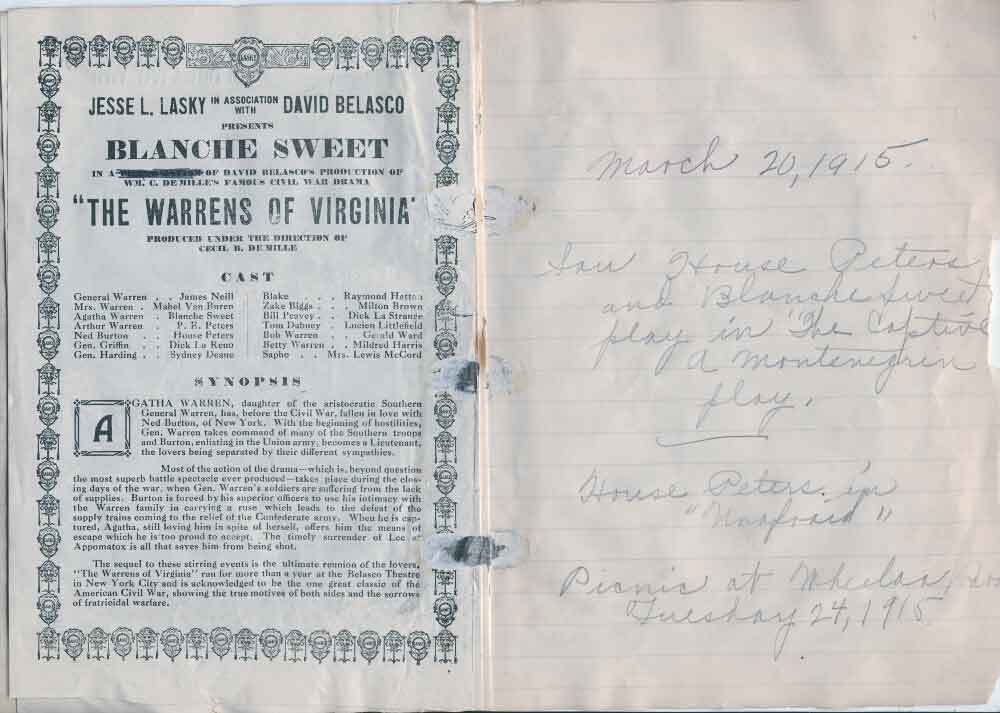 LASKY
JESSE L. LASKY IN ASSOCIATION WITH DAVID BELASCO
PRESENTS
BLANCHE SWEET
IN A OF DAVID BELASCO'S PRODUCTION OF
WM. C. DE MILLE'S FAMOUS CIVIL WAR DRAMA
"THE WARRENS OF VIRGINIA"
PRODUCED UNDER THE DIRECTION OF
CECIL B. DE MILLE
CAST
General Warren . . James Neill
Mrs. Warren . Mabel Van Buren
Agatha Warren . Blanche Sweet
Arthur Warren . P. E. Peters
Ned Burton . . House Peters
Gen. Griffin . Dick La Reno
Gen. Harding . . Sydney Deane
Blake . . Raymond Hatton
Zake Biggs . . Milton Brown
Bill Peavey . . Dick La Strange
Tom Dabney . Lucien Littlefield
Bob Warren . . Gerald Ward
Betty Warren . . Mildred Harris
Sapho . . Mrs. Lewis McCord
SYNOPSIS
AGATHA WARREN, daughter of the aristocratic Southern
General Warren, has, before the Civil War, fallen in love with
Ned Burton, of New York. With the beginning of hostilities,
Gen. Warren takes command of many of the Southern troops
and Burton, enlisting in the Union army, becomes a Lieutenant,
the lovers being separated by their different sympathies.
Most of the action of the drama—which is, beyond question
the most superb battle spectacle ever produced—takes place during the clos-
ing days of the war, when Gen. Warren's soldiers are suffering from the lack
of supplies. Burton is forced by his superior officers to use his intimacy with
the Warren family in carrying a ruse which leads to the defeat of the
supply trains coming to the relief of the Confederate army. When he is cap-
tured, Agatha, still loving him in spite of herself, offers him the means of
escape which he is too proud to accept. The timely surrender of Lee at
Appomatox is all that saves him from being shot.
The sequel to these stirring events is the ultimate reunion of the lovers.
"The Warrens of Virginia" ran for more than a year at the Belasco Theatre
in New York City and is acknowledged to be the one great classic of the
American Civil War, showing the true motives of both sides and the sorrows
of fratricidal warfare.
March 20, 1915.
Saw House Peters
and Blanche Sweet
play in "The Captive
A Montenegrin
play.
House Peters in
"Unafraid"
Picnic at
Tuesday 24, 1915